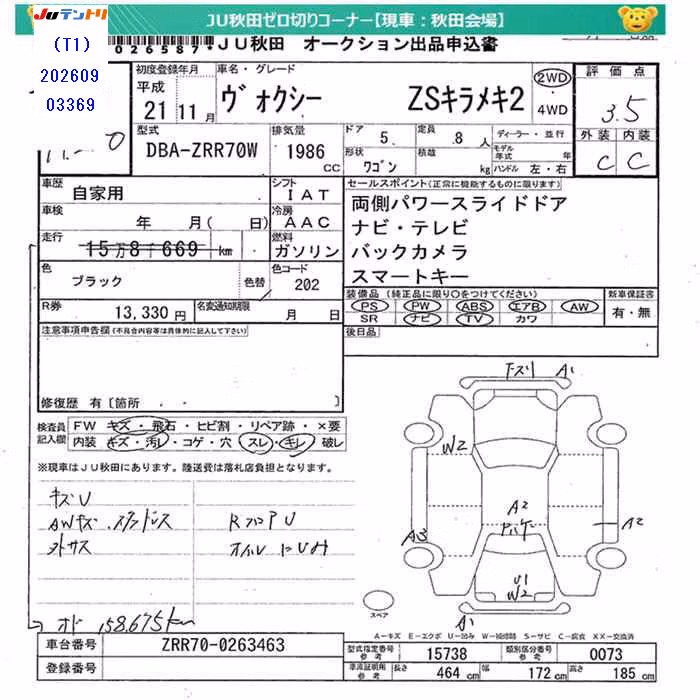 JUテントリ
JU秋田ゼロ切りコーナー【現車：秋田会場】
(T1)
202609
03369
026587
JU秋田 オークション出品申込書
初度登録年月
平成
21 11月
車名・グレード
ヴォクシー ZSキラメキ2
2WD
4WD
評価点
3.5
外装 内装
C C
型式
DBA-ZRR70W
排気量
1986
CC
ドア 5
定員 8人
形状 ワゴン
積載 kg
ディーラー・並行
モデル年式 年
ハンドル 左・右
車歴
自家用
シフト
IAT
車検
年 月( 日)
冷房
AAC
走行
15万8千669km
燃料
ガソリン
色
ブラック
色替
色コード
202
R券
13,330円
名変通知期限
月 日
セールスポイント(正常に機能するものに限ります)
両側パワースライドドア
ナビ・テレビ
バックカメラ
スマートキー
装備品(純正品に限り○をつけてください)
PS PW ABS エアB AW
SR ナビ TV カワ
新車保証書
有・無
後日品
注意事項申告欄(不具合内容等は具体的に記入して下さい)
修復歴 有〔箇所
検査員記入欄
FW キズ・飛石・ヒビ割・リペア跡・×要
内装 キズ・汚レ・コゲ・穴 スレ・キレ・破レ
※現車はJU秋田にあります。陸送費は落札店負担となります。
キズU
AWキズ.スタッドレス
外サス
RフロアU
オイルにじみ
オド 158,675km
下スリ A1
W2
A2
A3
A2
U1
W2
A1
スペア
A－キズ E－エクボ U－凹み W－補修跡 S－サビ C－腐食 XX－交換済
車台番号
ZRR70-0263463
登録番号
型式指定番号 参考
15738
類別区分番号 参考
0073
車庫証明用 参考
長さ 464 cm
幅 172 cm
高さ 185 cm